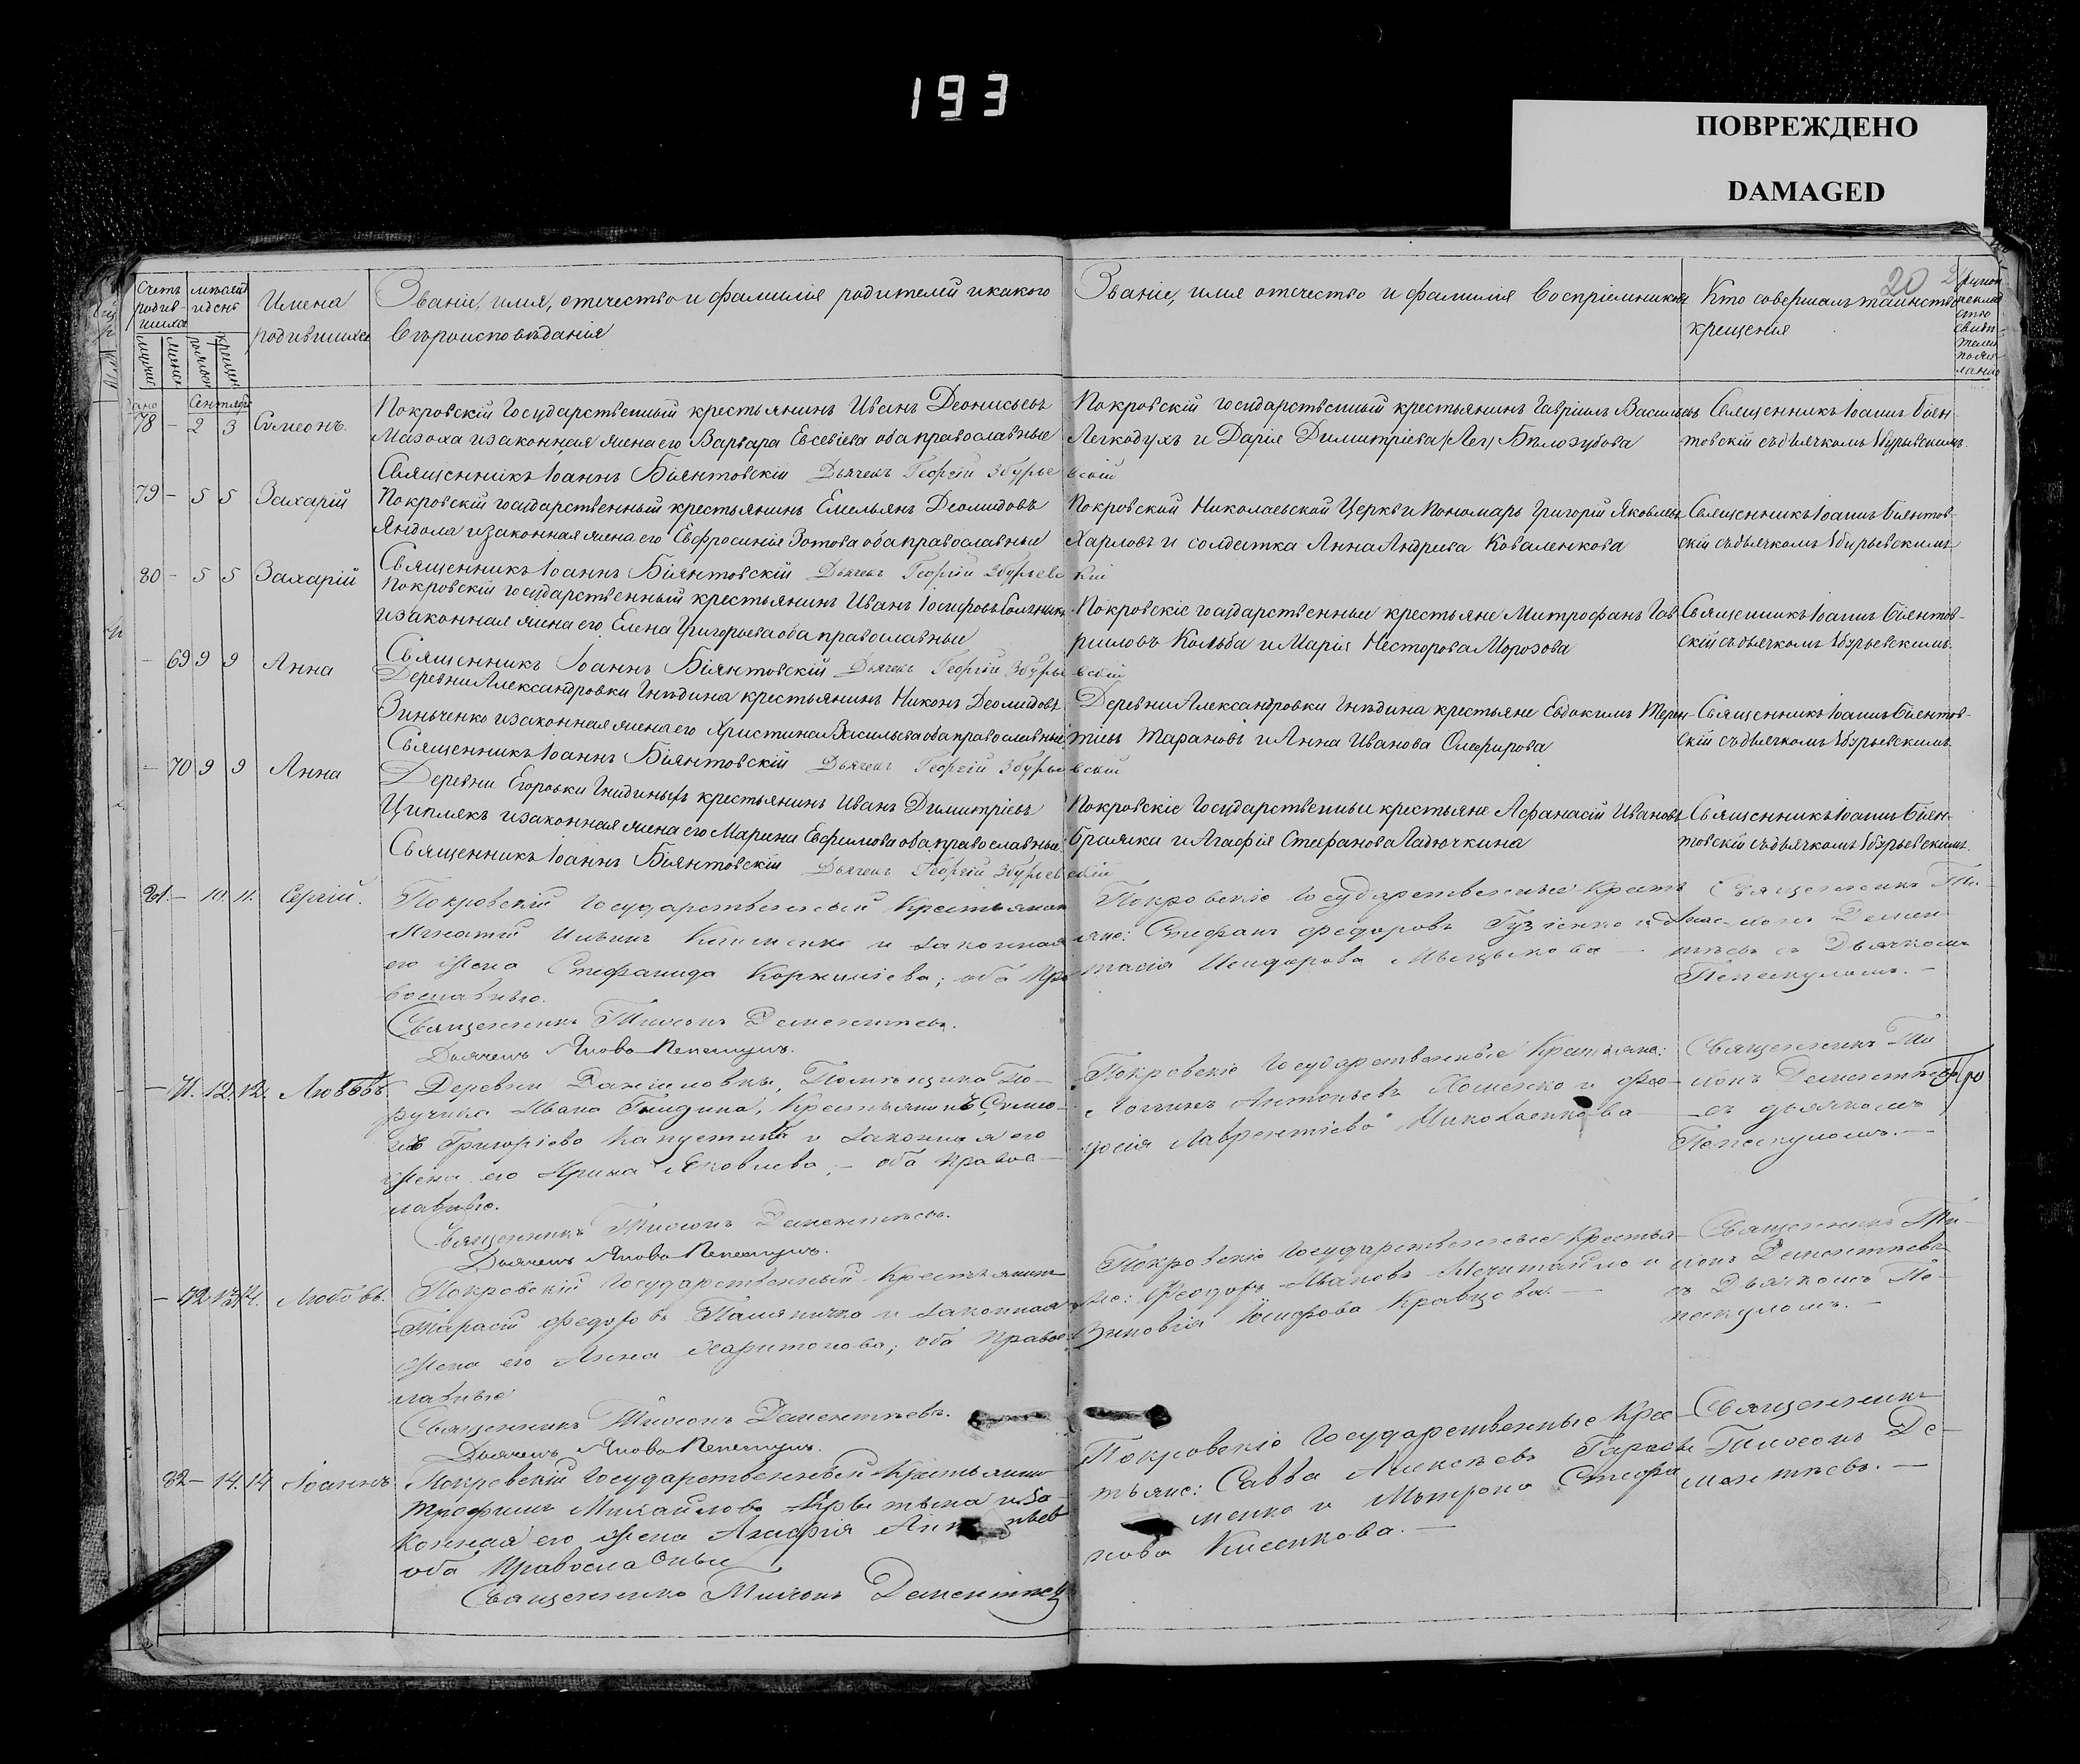 193
ПОВРЕЖДЕНО
DAMAGED
20
Счетъ родив-шихся
мѣсяцъ и день
Имена родившихся
Званіе, имя, отечество и фамилія родителей и какого
вѣроисповѣданія
Званіе, имя отечество и фамилія воспріемниковъ
Кто совершалъ таинство
крещенія
Сентября
78 - 2 3 Симеонъ.
Покровскій Государственный крестьянинъ Иванъ Деонисьевъ
Мазоха и законная жена его Варвара Евсевіева оба православные
Священникъ Іоаннъ Біянтовскій Дьячекъ Георгій Збурьевскій
Покровскій государственный крестьянинъ Гавріилъ Васильевъ
Легкодухъ и Дарія Димитріева Бѣлозубова
Священникъ Іоаннъ Біян-
товскій съ дьячкомъ Збурьевскимъ
79 - 5 5 Захарій
Покровскій государственный крестьянинъ Емельянъ Деомидовъ
Яндола и законная жена его Евфросинія Зотова оба православные
Священникъ Іоаннъ Біянтовскій Дьячекъ Георгій Збурьевскій
Покровской Николаевской Церкви Пономарь Григорій Яковлевъ
Харловъ и солдатка Анна Андреева Коваленкова
Священникъ Іоаннъ Біянтов-
скій съ дьячкомъ Збурьевскимъ
80 - 5 5 Захарій
Покровскій государственный крестьянинъ Иванъ Іосифовъ
и законная жена его Елена Григорьева оба православные
Священникъ Іоаннъ Біянтовскій Дьячекъ Георгій Збурьевскій
Покровскіе государственные крестьяне Митрофанъ Гав-
риловъ Кольба и Марія Несторова Морозова
Священникъ Іоаннъ Біянтов-
скій съ дьячкомъ Збурьевскимъ.
- 69 9 9 Анна
Деревни Александровки Гнѣдина крестьянинъ Никонъ Деомидовъ
Зинченко и законная жена его Христина Васильева оба православные
Священникъ Іоаннъ Біянтовскій Дьячекъ Георгій Збурьевскій
Деревни Александровки Гнѣдина крестьяне Евдокимъ Терен-
тіевъ Тарановъ и Анна Иванова Олефирова
Священникъ Іоаннъ Біянтов-
скій съ дьячкомъ Збурьевскимъ
- 70 9 9 Анна
Деревни Егоровки Гнидиныхъ крестьянинъ Иванъ Димитріевъ
Циплякъ и законная жена его Марина Евфимова оба православные
Священникъ Іоаннъ Біянтовскій Дьячекъ Георгій Збурьевскій
Покровскіе Государственные крестьяне Афанасій Ивановъ
и Агафія Стефанова Гадючкина
Священникъ Іоаннъ Біян-
товскій съ дьячкомъ Збурьевскимъ.
81 - 10. 11. Сергій.
Покровскій Государственный Крестьянинъ
Игнатій Ильинъ Клименко и законная
его жена Стефанида Корнилiева; оба пра-
вославные.
Священникъ Тимонъ Дементьевъ.
Дьячекъ Яковъ Пепескулъ.
Покровскіе Государственные Кресть-
яне: Стефанъ Федоровъ Гузіенко и Анас-
тасія Исидорова
Священникъ Ти-
монъ Демен-
тьевъ съ Дьячкомъ
Пепескуломъ. -
- 71. 12. 12. Любовь
Деревни Даниловки, Помѣщика По-
ручика Ивана Гнидина, Крестьянинъ Симео-
нъ Григоріевъ Капустинъ и законная его
жена его Ирина Яковлева; - оба правос-
лавные.
Священникъ Тимонъ Дементьевъ.
Дьячекъ Яковъ Пепескулъ.
Покровскіе Государственные Крестьяне:
Логинъ Антоньевъ Хоменко и Фео-
досія Лаврентіева Николаенкова
Священникъ Ти-
монъ Дементьевъ
съ дьячкомъ
Пепескуломъ. -
- 72 13. 14. Любовь.
Покровскій Государственный Крестьянинъ
Тарасій Федоровъ Паляничко и законная
жена его Анна Харитонова; оба правос-
лавные
Священникъ Тимонъ Дементьевъ.
Дьячекъ Яковъ Пепескулъ.
Покровскіе Государственные Крестья-
не: Феодоръ Ивановъ и
Зиновія Іосифова Кравцова. -
Священникъ Ти-
монъ Дементьевъ
съ Дьячкомъ Пе-
пескуломъ. -
82 - 14. 14 Іоаннъ
Покровскій Государственный Крестьянинъ
Трофимъ Михайловъ и за-
конная его жена Агафія
оба Православные
Священникъ Тимонъ Дементьевъ
Покровскіе Государственные Крес-
тьяне: Савва Алексѣевъ Гарасе-
менко и Матрона Стефа-
нова Кисенкова. -
Священникъ
Тимонъ Де-
ментьевъ. -